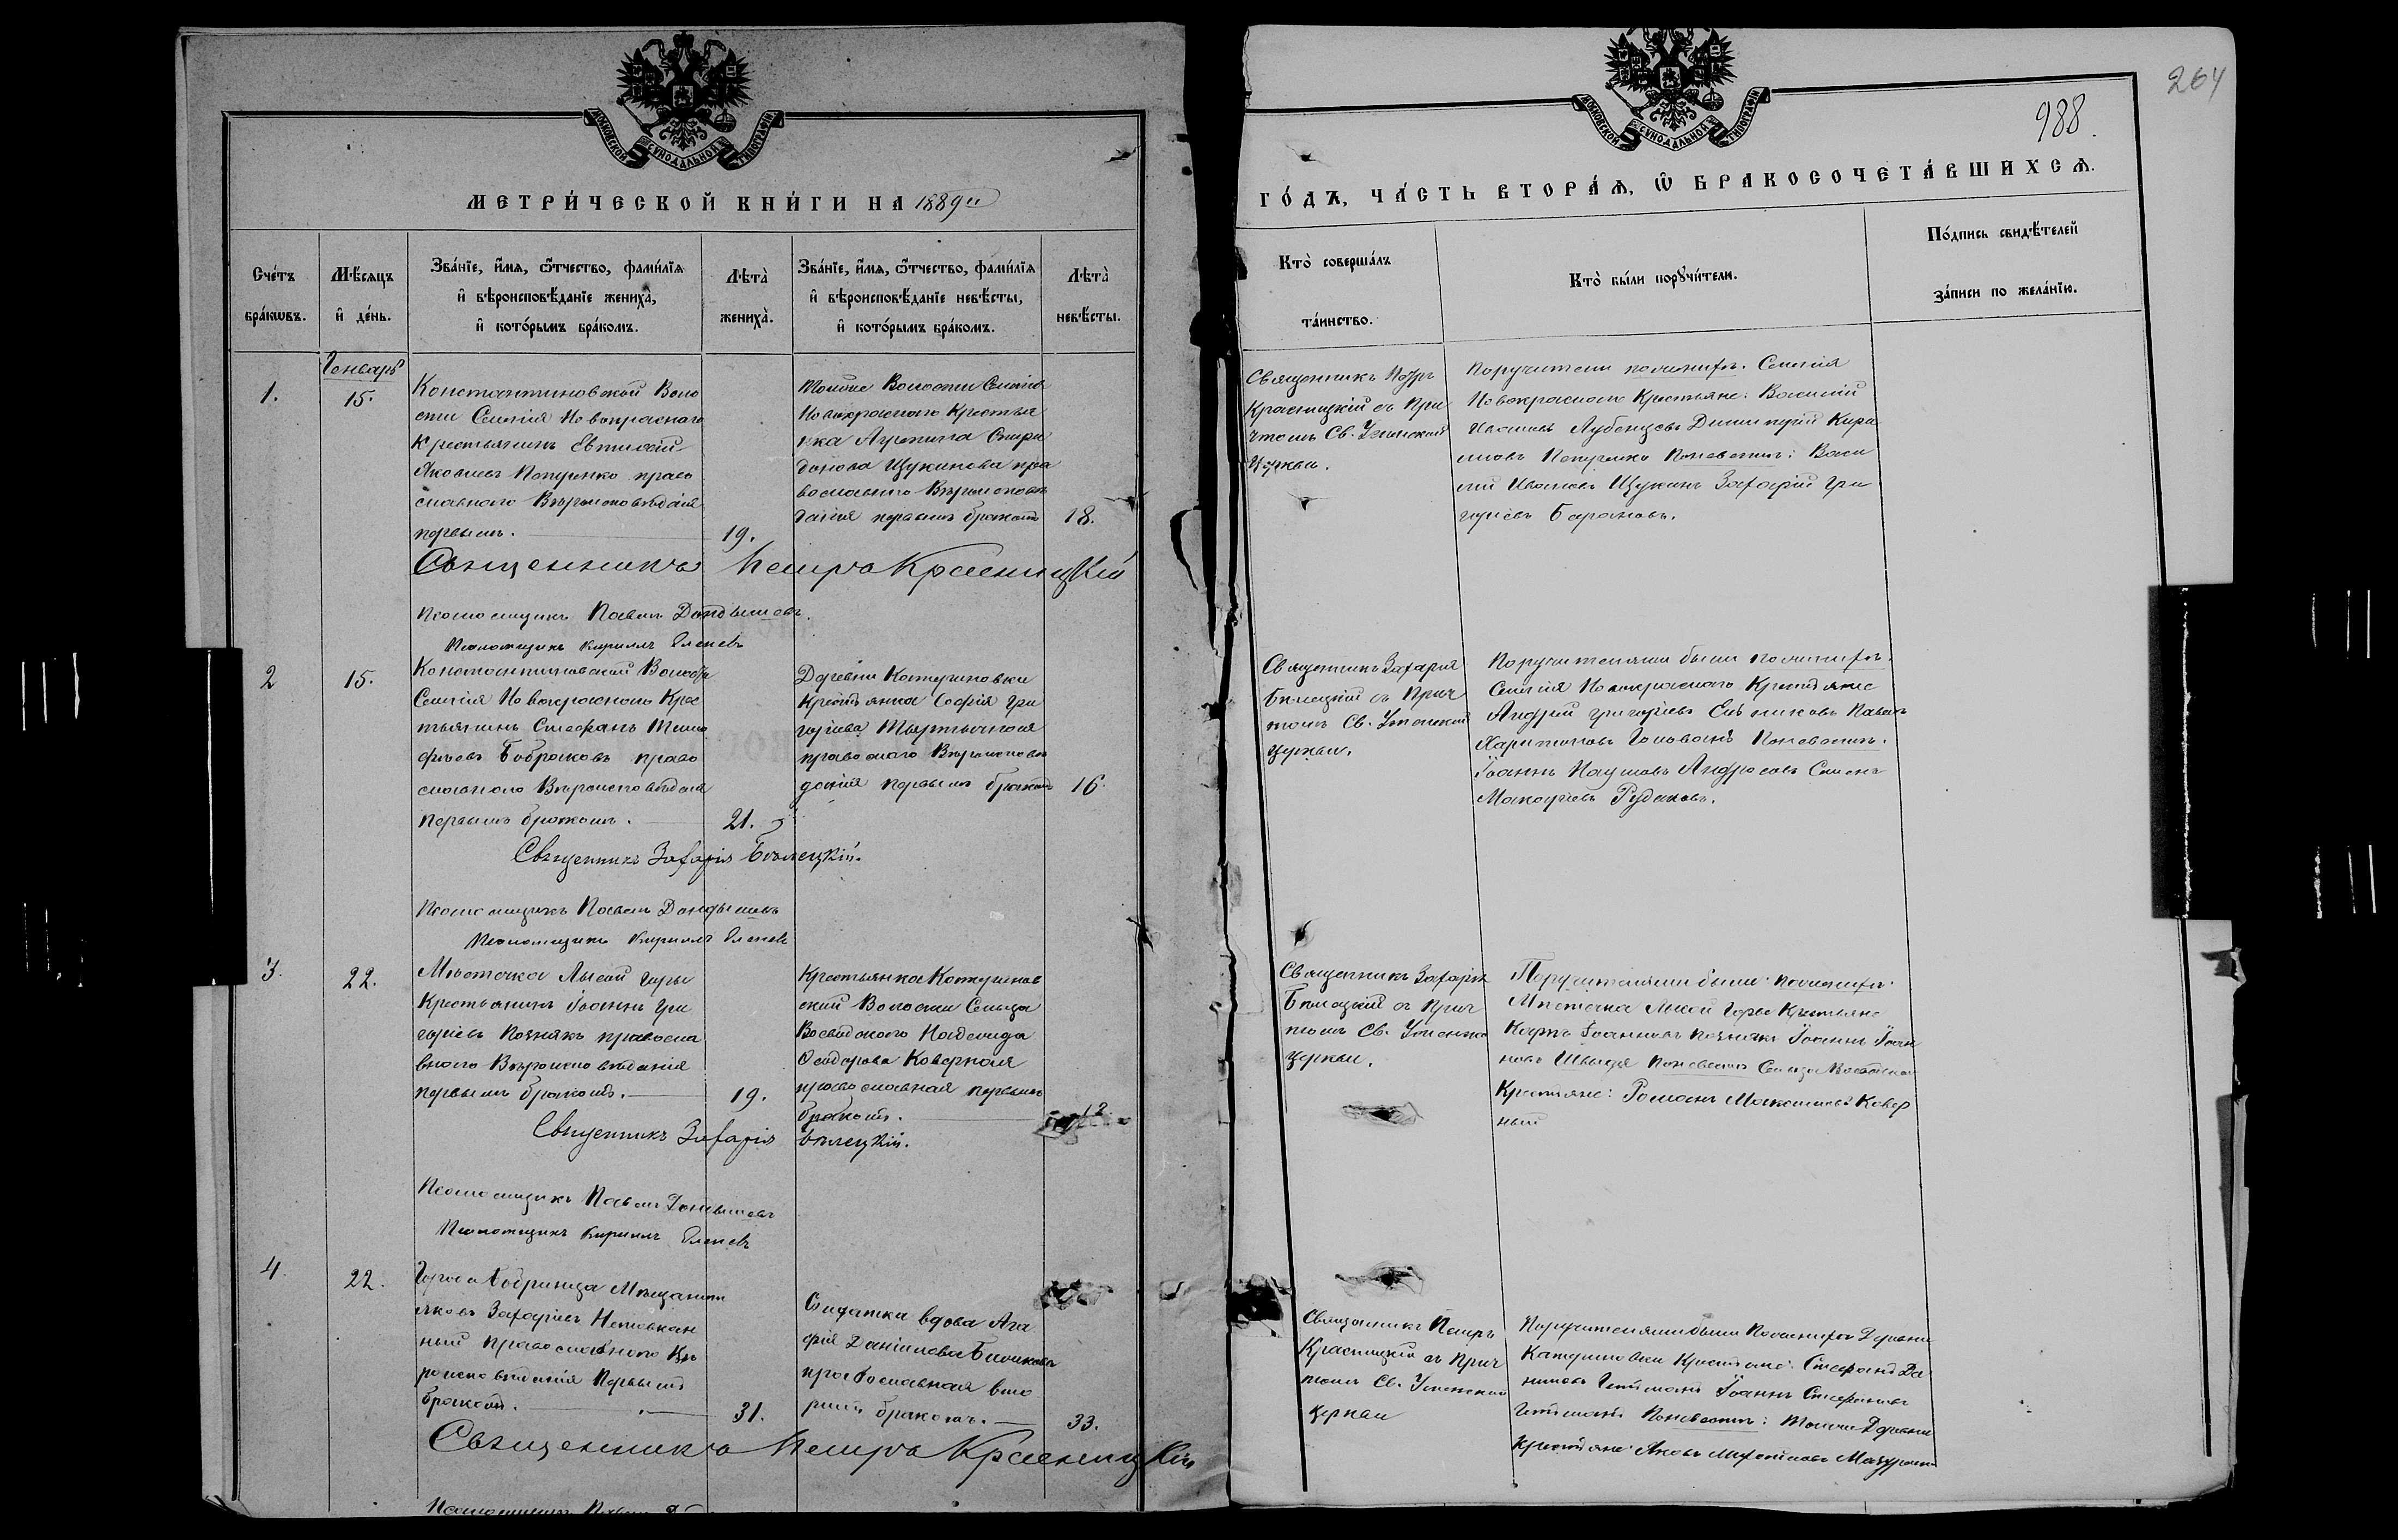 МОСКОВСКОЙ СѴНОДАЛЬНОЙ ТИПОГРАФІИ
МЕТРИ́ЧЕСКОЙ КНИ́ГИ НА 1889й
Сче́тъ бра́кωвъ.
Мѣ́сяцъ и҆ де́нь.
Зва́нїе, и҆́мѧ, ѻ҆́тчество, фами́лїѧ
и҆ вѣроисповѣ́данїе жениха̀,
и҆ кото́рымъ бра́комъ.
Лѣта̀ жениха̀.
Зва́нїе, и҆́мѧ, ѻ҆́тчество, фами́лїѧ
и҆ вѣроисповѣ́данїе невѣ́сты,
и҆ кото́рымъ бра́комъ.
Лѣта̀ невѣ́сты.
Генварь
1.
15.
Константиновской Воло
сти Селенія Новокраснаго
Крестьянинъ Евтихій
Яковлевъ Пепренко право
славнаго Вѣроисповѣданія
первымъ.
19.
тойже Волости Селенія
Новокраснаго Крестья
нка Агрипина Спири
донова Щукинова пра
вославнаго Вѣроисповѣ
данія первымъ бракомъ
18.
Священникъ Петръ Красницкій
Псаломщикъ Павелъ
Псаломщикъ Кириллъ
2
15.
Константиновской Волости
Селенія Новокраснаго Крес
тьянинъ Стефанъ Тимо
фѣевъ Бобраковъ право
славнаго Вѣроисповѣданія
первымъ бракомъ.
21.
Деревни Катериновки
Крестьянка Софія Гри
горіева
православнаго Вѣроисповѣ
данія первымъ бракомъ
16.
Священникъ Захарія Бѣлецкій.
Псаломщикъ Павелъ
Псаломщикъ Кириллъ
3.
22.
Мѣстечка Лысой Горы
Крестьянинъ Іоаннъ Гри
горіевъ Познякъ правосла
внаго Вѣроисповѣданія
первымъ бракомъ.
19.
Крестьянка Катеринов
ской Волости Сельца
Надежда
Ѳеодорова Коверная
православная первымъ
бракомъ.
Священникъ Захарія Бѣлецкій.
Псаломщикъ Павелъ
Псаломщикъ Кириллъ
4.
22.
Города Бобринца Мѣщанинъ
Яковъ Захаріевъ
ный православнаго Вѣ
роисповѣданія Первымъ
бракомъ.
31.
Солдатка вдова Ага
фія Даніилова
православная вто
рымъ бракомъ.
33.
Священникъ Петръ Красницкій
Псаломщикъ Павелъ
264
988.
МОСКОВСКОЙ СѴНОДАЛЬНОЙ ТИПОГРАФІИ
ГО́ДЪ, ЧА́СТЬ ВТОРА́Ѧ, Ѽ БРАКОСОЧЕТА́ВШИХСѦ.
Кто̀ соверша́лъ та́инство.
Кто̀ бы́ли порꙋчи́тели.
По́дпись свидѣ́телей
за́писи по жела́нїю.
Священникъ Петръ
Красницкій съ При
чтомъ Св. Успенской
Церкви.
Поручители по женихѣ. Селенія
Новокраснаго Крестьяне: Василій
Ивановъ Лубенцовъ Димитрій Кири
ловъ Пепренко По невѣстѣ: Васи
лій Ивановъ Щукинъ Захарій Гри
горіевъ Барановъ.
Священникъ Захарія
Бѣлецкій съ Прич
томъ Св. Успенской
Церкви.
Поручителями были по женихѣ.
Селенія Новокраснаго Крестьяне
Андрей Григоріевъ Павелъ
Харитоновъ Головань По невѣстѣ.
Іоаннъ Наумовъ Андросовъ Семенъ
Макаріевъ Рудаковъ.
Священникъ Захарія
Бѣлецкій съ Прич
томъ Св. Успенской
Церкви.
Поручителями были: по женихѣ:
Мѣстечка Лысой Горы Крестьяне
Карпъ Іоанновъ Познякъ Іоаннъ Іоан
новъ По невѣстѣ Сельца
Крестьяне: Романъ Максимовъ Ковер
ный
Священникъ Петръ
Красницкій съ Прич
томъ Св. Успенской
Церкви
Поручителями были По женихѣ Деревни
Катериновки Крестьяне: Стефанъ Да
ниловъ Гетманъ Іоаннъ Стефановъ
Гетманъ По невѣстѣ: тойже Деревни
Крестьяне Яковъ